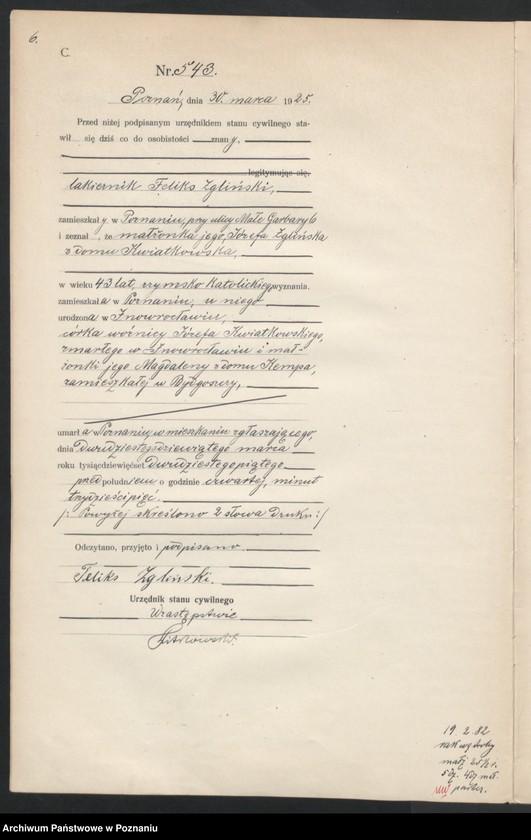 6.
C.
Nr. 543.
Poznań, dnia 30. marca 1925.
Przed niżej podpisanym urzędnikiem stanu cywilnego sta-
wił się dziś co do osobistości znany,
legitymując się,
lakiernik Feliks Zgliński,
zamieszkały w Poznaniu, przy ulicy Małe Garbary 6
i zeznał, że małżonka jego, Józefa Zglińska
z domu Kwiatkowska,
w wieku 43 lat, rzymsko katolickiego wyznania.
zamieszkała w Poznaniu, u niego
urodzona w Inowrocławiu,
córka woźnicy Józefa Kwiatkowskiego,
zmarłego w Inowrocławiu i mał-
żonki jego Magdaleny z domu Kempa,
zamieszkałej w Bydgoszczy,
umarła w Poznaniu w mieszkaniu zgłaszającego,
dnia Dwudziestego dziewiątego marca
roku tysiącdziewięćset Dwudziestego piątego
przed południem o godzinie czwartej, minut
trzydzieści pięć.
/: Powyżej skreślono 2 słowa druku :/
Odczytano, przyjęto i podpisano
Feliks Zgliński.
Urzędnik stanu cywilnego
W zastępstwie
19. 2. 82
Archiwum Państwowe w Poznaniu